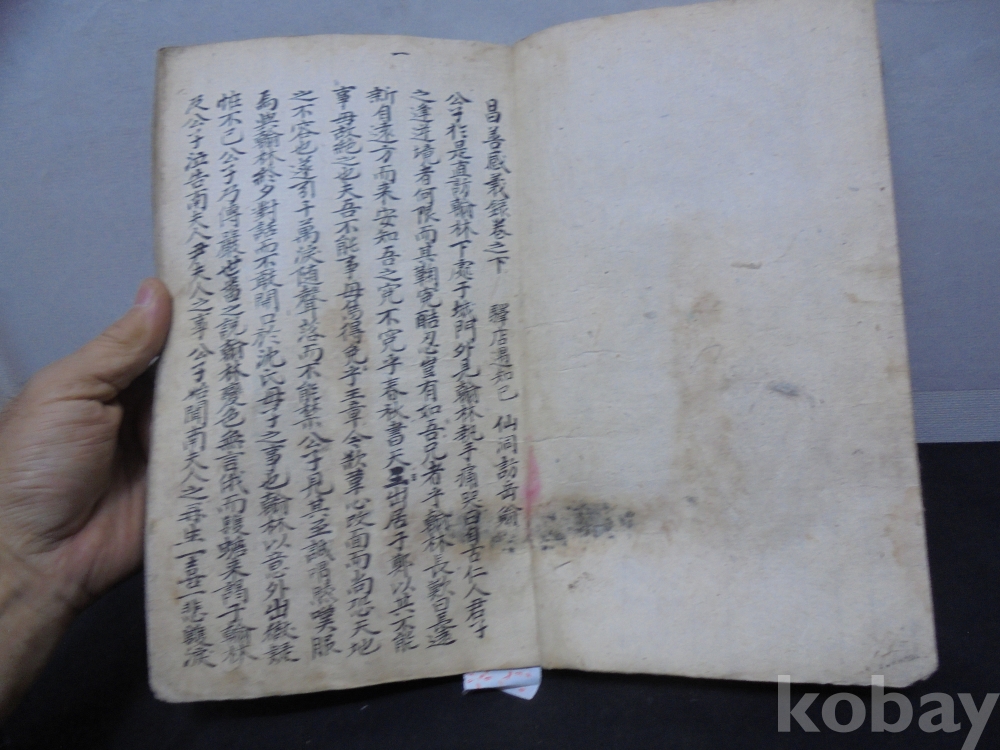 一
昌善感義錄卷之下 驛店遇知己 仙洞訪岳翁
公子於是直訪翰林下處于城門外見翰林執手痛哭曰自古仁人君子
之逢逆境者何限而其覊冤酷忍豈有如吾兄者乎翰林長歎曰吾遠
新自遠方而來安知吾之冤不冤乎春秋書天王出居于鄭以其不能
事母故絶之也夫吾不能事母焉得免乎王章今欲革心改面而尚恐天地
之不容也遂引千萬淚随聲落而不能禁公子見其至誠胸歎服
焉與翰林終夕對話而不敢開口於沈氏母子之事也翰林以意外出繳
恠不已公子乃傳嚴世蕃之說翰林變色無言俄而 蟾來謁于翰林
及公子泣告南夫人尹夫人之事公子始聞南夫人之再生一喜一悲 淚
kobay